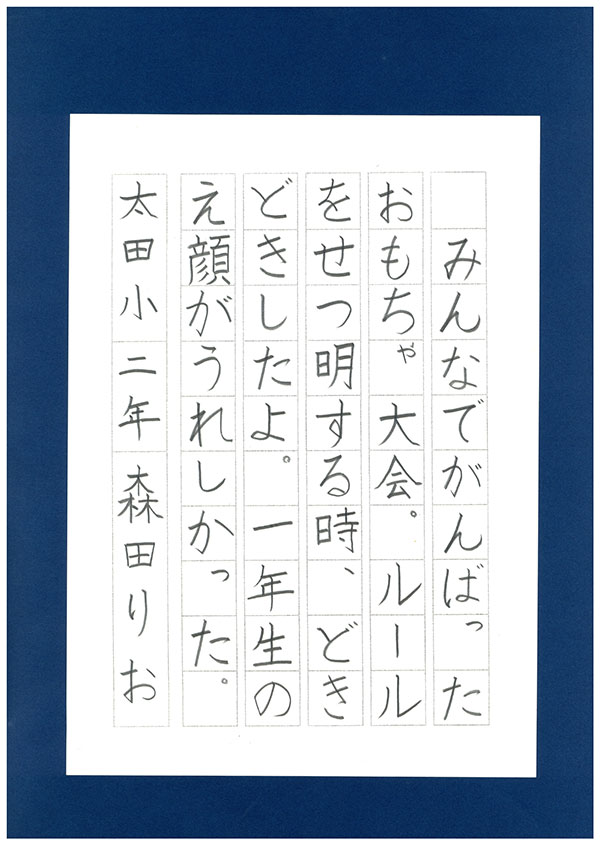 みんなでがんばった
おもちゃ大会。ルール
をせつ明する時、どき
どきしたよ。一年生の
え顔がうれしかった。
太田小二年森田りお